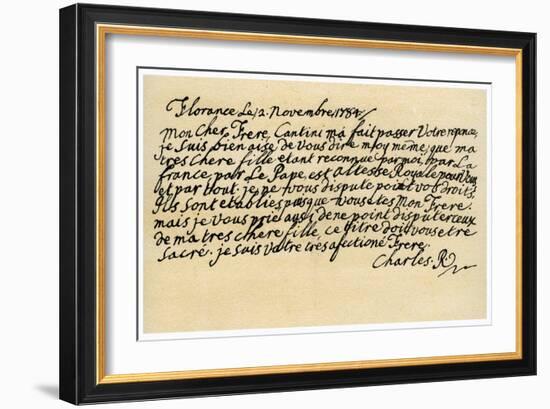 Florance Le, 2. Novembre, 1784
Mon Cher Frere Cantini ma fait passer Votre reponce,
je suis bien aise de vous dire moy même, que ma
tres Chere fille etant reconnue par moi, par La
france, par Le Pape, est altesse Royale pour Vous
et par tout. je ne vous dispute point vos droits,
Ils sont etablies puesque vous etes Mon Frere.
mais je vous prie aussi de ne point disputer ceux
de ma tres chere fille, ce titre doit vous etre
sacré. je suis votre tres afectioné Frere.
Charles. R